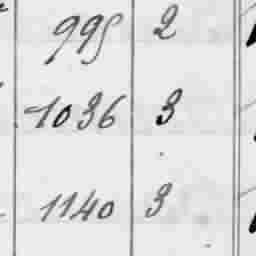 995 2
1036 3
1140 3